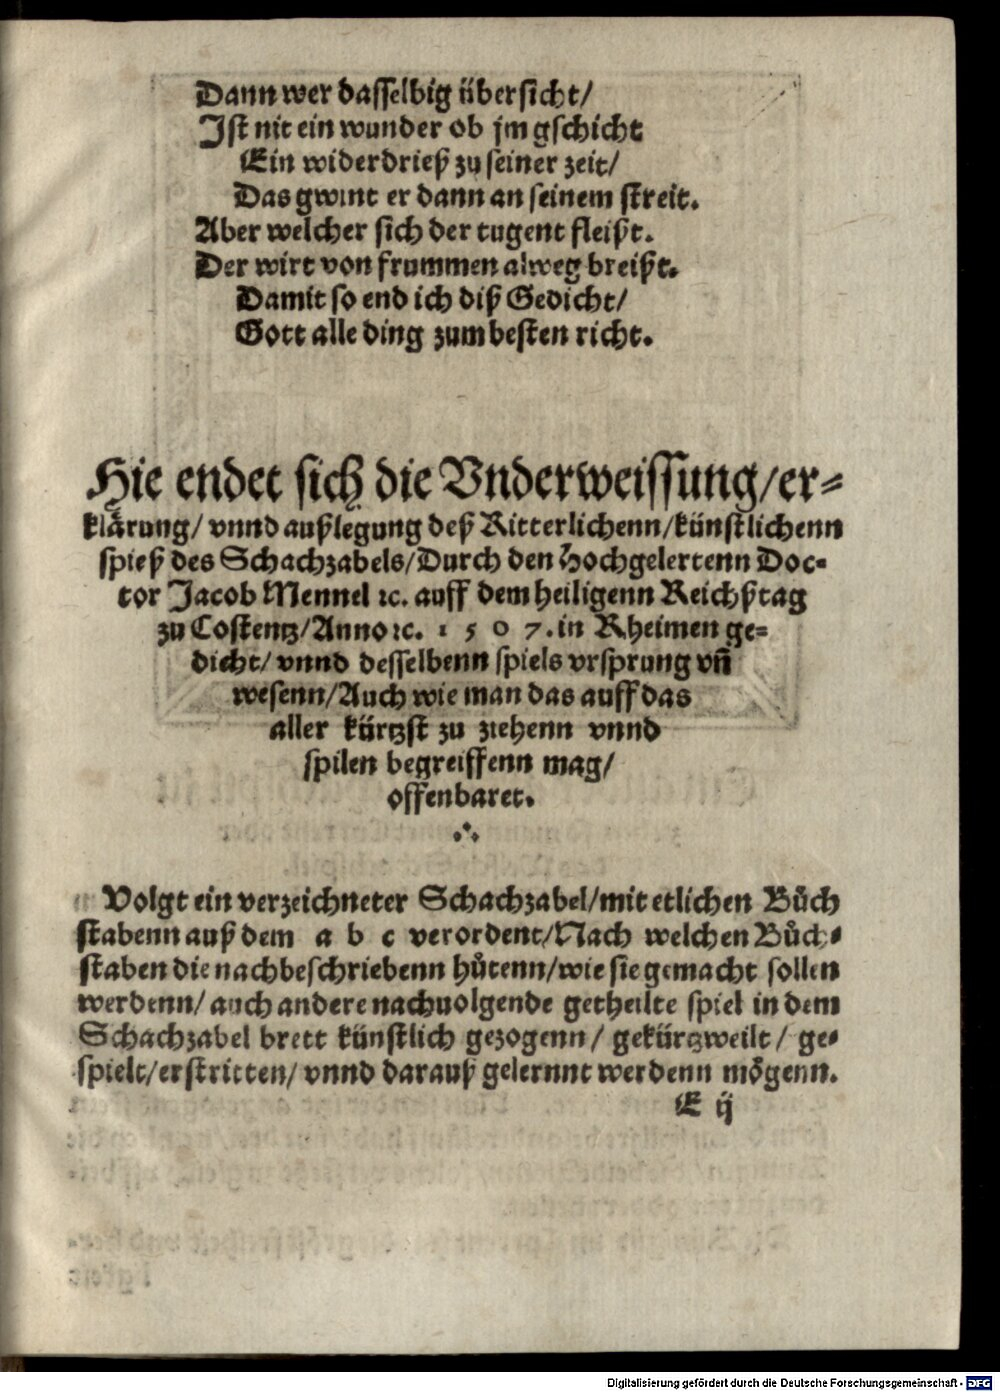 Dann wer dasselbig übersicht/
Ist nit ein wunder ob jm gschicht
Ein widerdrieß zu seiner zeit/
Das gwint er dann an seinem streit.
Aber welcher sich der tugent fleißt.
Der wirt von frummen alweg breißt.
Damit so end ich diß Gedicht/
Gott alle ding zum besten richt.
Hie endet sich die Vnderweissung/er⸗
klärung/ vnnd außlegung deß Ritterlichenn/künstlichenn
spieß des Schachzabels/Durch den Hochgelertenn Doc⸗
tor Jacob Mennel ꝛc. auff dem heiligenn Reichßtag
zu Costentz/Anno ꝛc. 1 5 0 7. in Rheimen ge⸗
dicht/ vnnd desselbenn spiels vrsprung vn̄
wesenn/Auch wie man das auff das
aller kürtzst zu ziehenn vnnd
spilen begreiffenn mag/
offenbaret.
Volgt ein verzeichneter Schachzabel/mit etlichen Bůch
stabenn auß dem a b c verordent/Nach welchen Bůch⸗
staben die nachbeschriebenn hůtenn/wie sie gemacht sollen
werdenn/ auch andere nachuolgende getheilte spiel in dem
Schachzabel brett künstlich gezogenn/ gekürtzweilt/ ge⸗
spielt/erstritten/ vnnd darauß gelernnt werdenn mögenn.
E ij
Digitalisierung gefördert durch die Deutsche Forschungsgemeinschaft - DFG